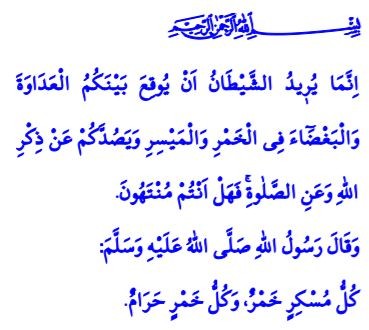 بِسْمِ اللهِ الرَّحْمٰنِ الرَّحِيمِ
اِنَّمَا يُرٖيدُ الشَّيْطَانُ اَنْ يُوقِعَ بَيْنَكُمُ الْعَدَاوَةَ
وَالْبَغْضَٓاءَ فِى الْخَمْرِ وَالْمَيْسِرِ وَيَصُدَّكُمْ عَنْ ذِكْرِ
اللهِ وَعَنِ الصَّلٰوةِۚ فَهَلْ اَنْتُمْ مُنْتَهُونَ.
وَقَالَ رَسُولُ اللهِ صَلَّى اللهُ عَلَيْهِ وَسَلَّمَ:
كُلُّ مُسْكِرٍ خَمْرٌ، وَكُلُّ خَمْرٍ حَرَامٌ.